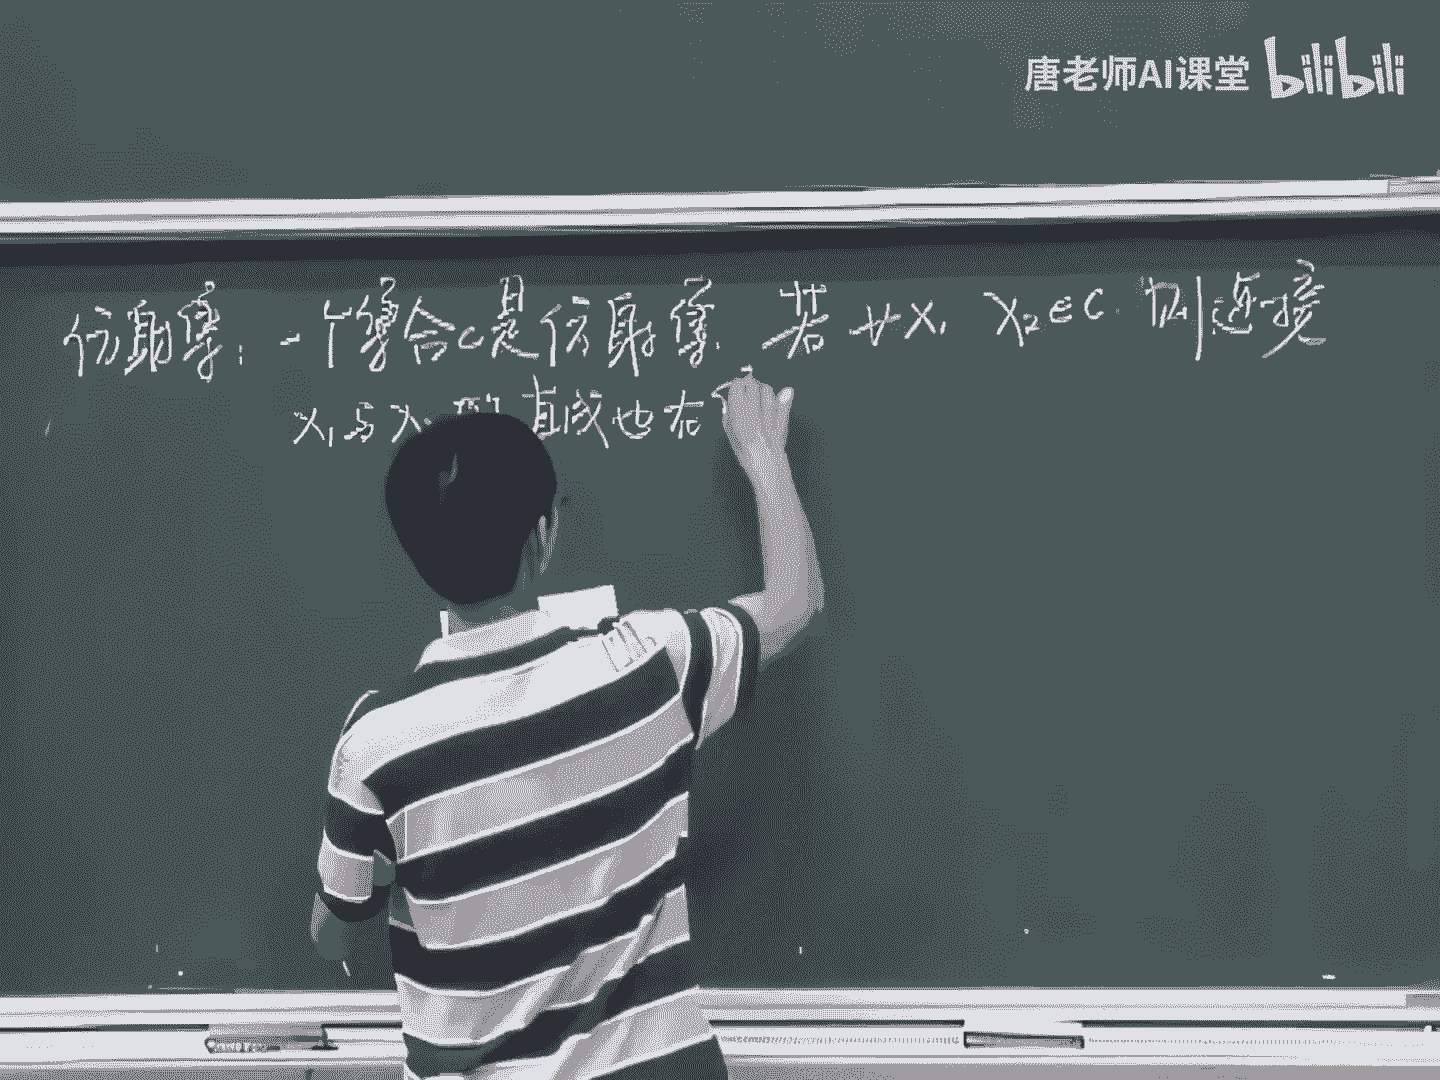 唐老师AI课堂 bilibili
仿射集：一个集合C是仿射集，若∀X₁ X₂∈C 则连接
X₁与X 的直线也在